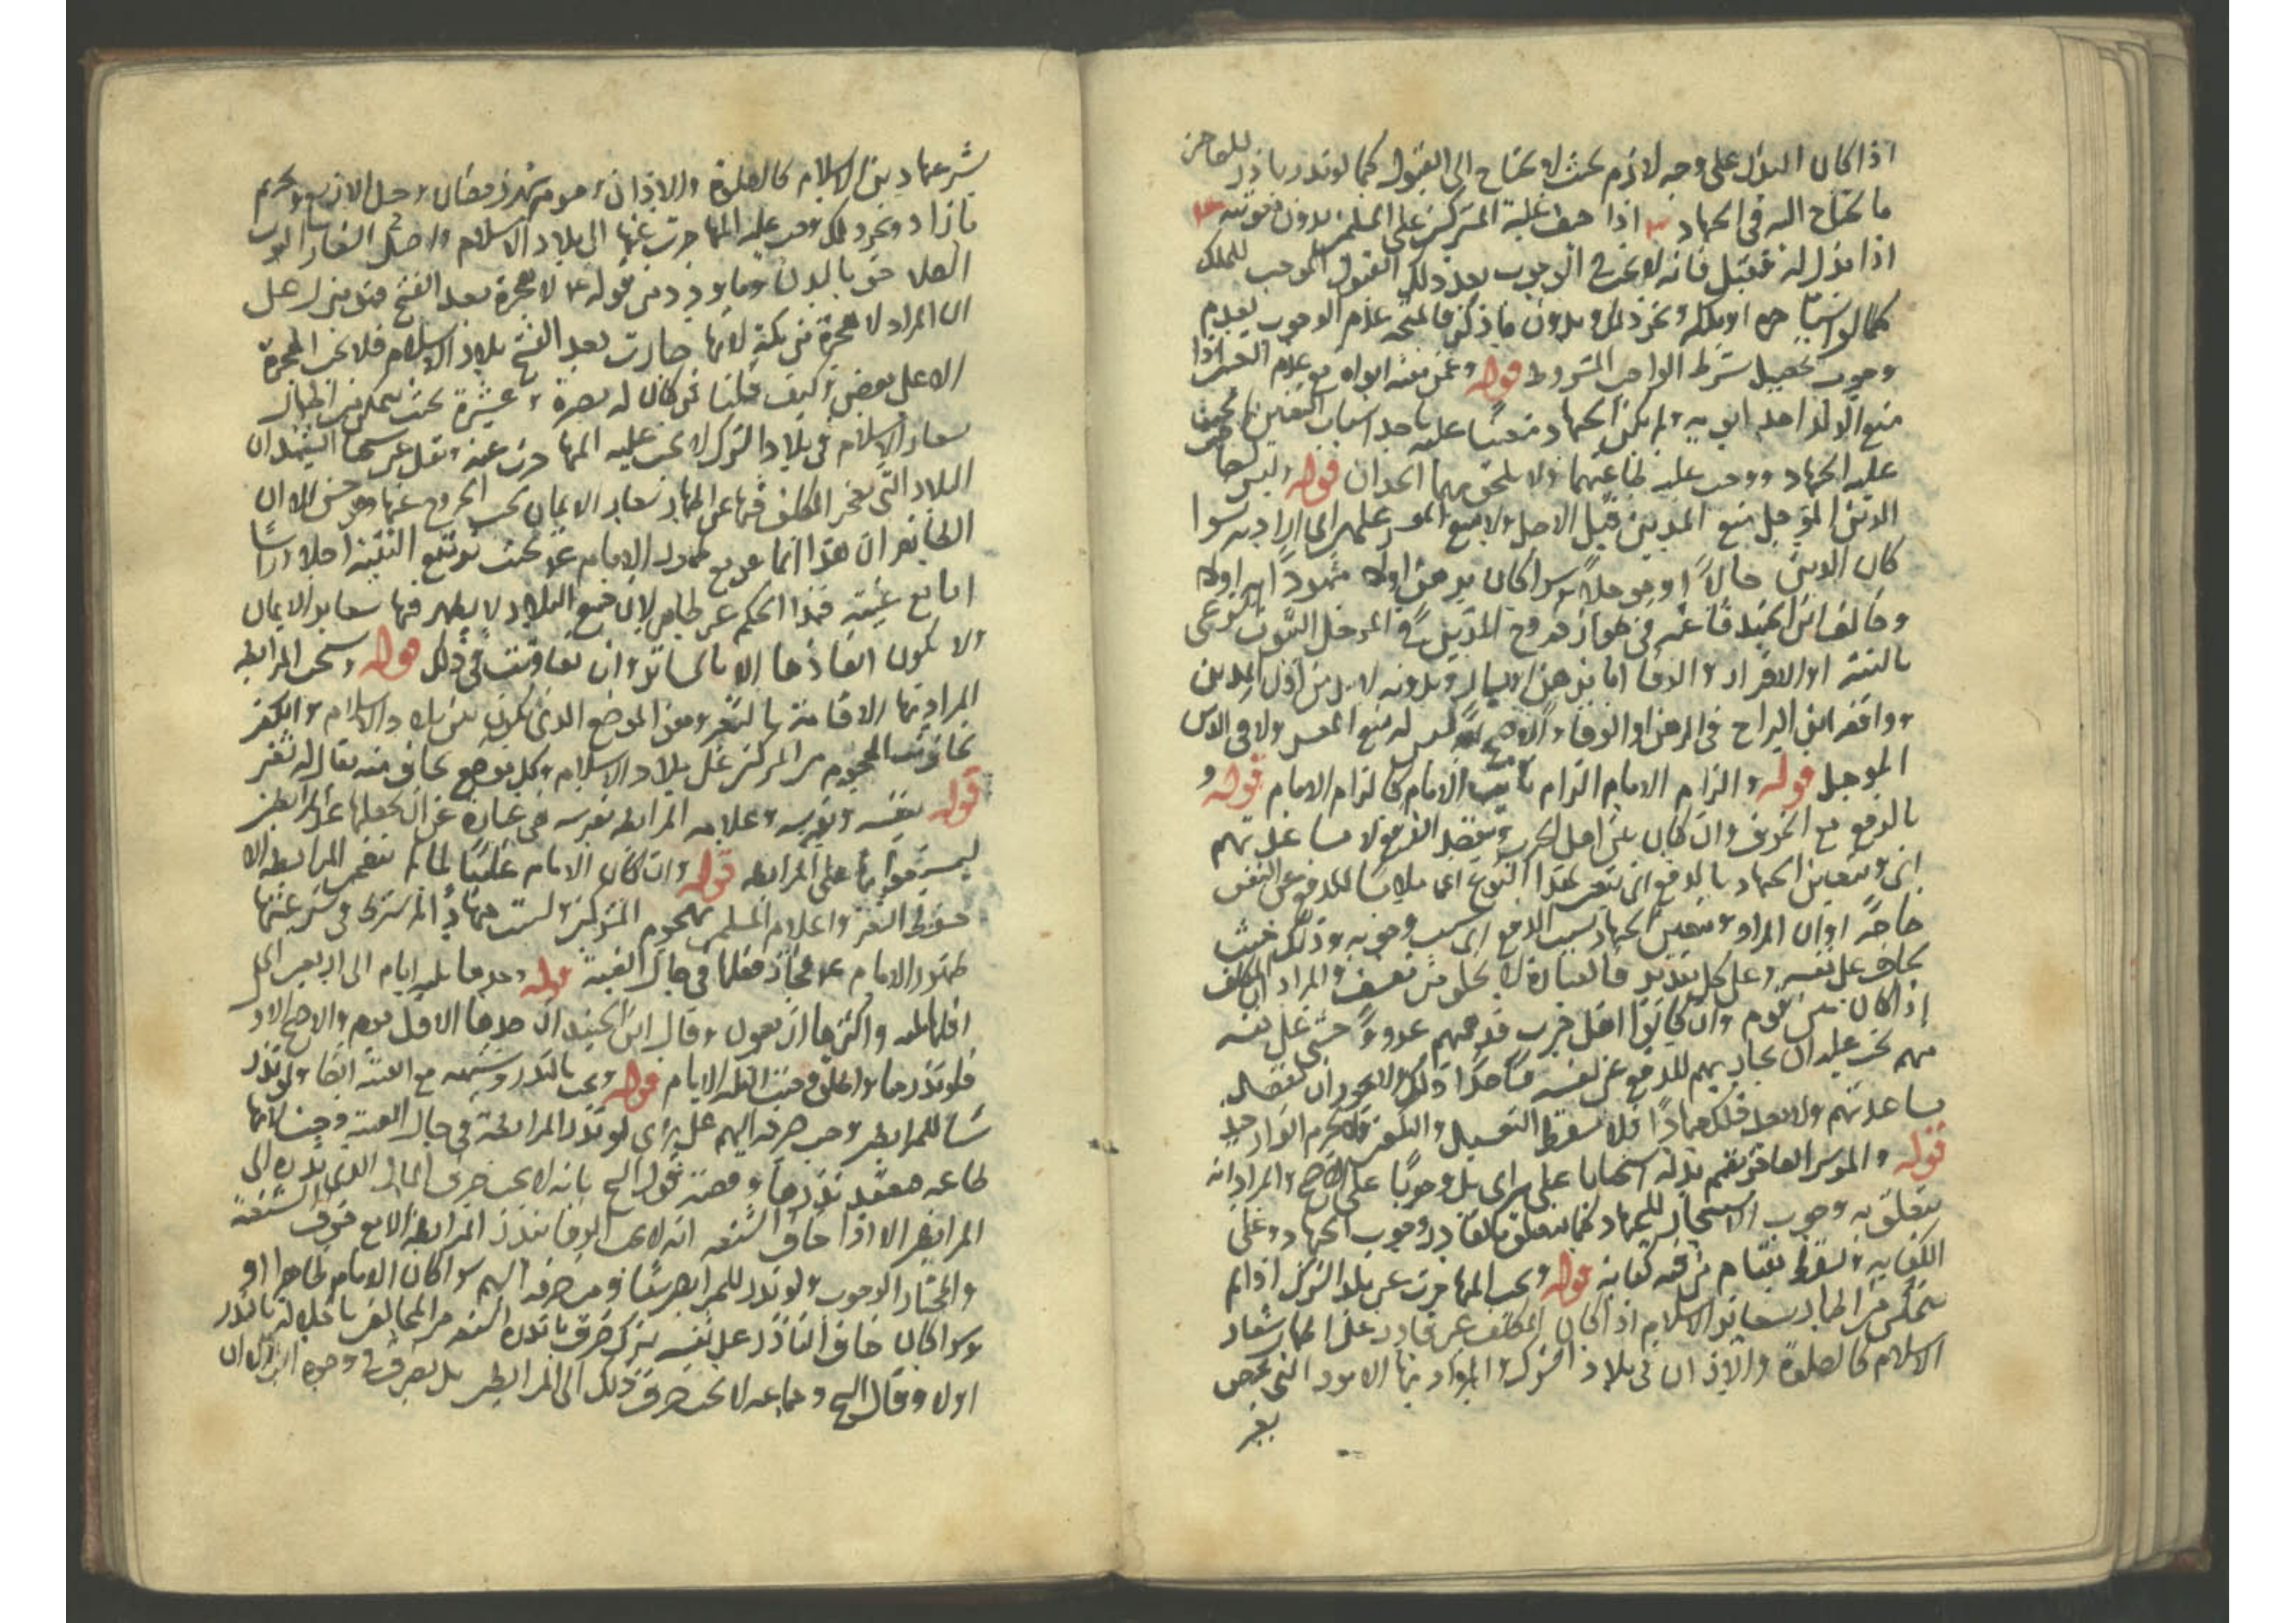 اذا كان البذل على وجه لازم بحيث لا يحتاج الى القبول كما لو نذر باذل للعاجز
ما يحتاج اليه في الجهاد اذا خيف غلبة المشركين على المسلمين بدون معونته
اذا بذل له فقبل فانه لا يجب الوجوب بعد ذلك القبول الموجب للملك
كما لو او ملكه ونحو ذلك وبدون ما ذكر فالمتجه عدم الوجوب لعدم
وجوب تحصيل شرط الواجب المشروط قوله وعمن منعه ابواه مع عدم التعين اذا
منع الولد احد ابويه ولم يكن الجهاد متعينا عليه باحد اسباب التعين لم يجب
عليه الجهاد ووجب عليه طاعتهما ولا يلحق بهما الجدان قوله وليس لصاحب
الدين المؤجل منع المديون قبل الاجل ولا منع المعسر على راي الراد به سواء
كان الدين حالا او مؤجلا وسواء كان برهن اولا مشهودا به اولا
وخالف ابن الجنيد في جواز خروج المديون المؤجل الثبوت
بالبينة او الاقرار والوفاء اما برهن او مال وبدونه لا بد من اذن المدين
ووافقه ابن البراج في الرهن او الوفاء والاصح انه ليس له منع المعسر ولا في الدين
المؤجل قوله والزام الامام الزام نايب الامام كالزام الامام قوله و
بالدفع مع الخوف وان كان بين اهل الحرب ويقصد الدفع لا مساعدتهم
اي ويتعين الجهاد بالدفع اي يتعين هذا النوع اي ملابسا للدفع عن النفس
خاصة او ان المراد ويتعين الجهاد بسبب الدفع اي بسبب وجوبه وذلك حيث
يخاف على نفسه وعلى كل تقدير فالعبارة لا تخلو من تعسف والمراد ان المكلف
اذا كان بين قوم وان كانوا اهل حرب فدهمهم عدو خشي على نفسه
منهم يجب عليه ان يحاربهم للدفع عن نفسه قاصدا ذلك ولا يجوز ان يقصد
مساعدتهم ولا يعد ذلك جهادا فلا يسقط التغسيل والتكفين ولا يحرم الفرار
قوله والموسر العاجز يقيم بدله استحبابا على راي بل وجوبا على الاصح والمراد انه
يتعلق به وجوب الاستيجار للجهاد كما يتعلق بالقادر وجوب الجهاد وعلى
الكفاية ويسقط بقيام من فيه كفاية قوله ويجب المهاجرة عن بلد الشرك اذا لم
يتمكن من اظهار شعائر الاسلام اذا كان المكلف غير قادر على اظهار شعائر
الاسلام كالصلوة والاذان في بلاد الشرك والمراد بها الامور التي يختص
شرعها دين الاسلام كالصلوة والاذان وصوم شهر رمضان وحل الازيد وتحريم
ما زاد ونحو ذلك وجب عليه المهاجرة عنها الى بلاد الاسلام واصل الشعار الثوب
الملاصق بالبدن وما يوجد من قوله ع لا هجرة بعد الفتح فهو منزل على
ان المراد لا هجرة من مكة لانها صارت بعد الفتح بلاد الاسلام فلا يجب الهجرة
الا على بعض وكيف قلنا فمن كان له نصرة وعشيرة بحيث يتمكن من اظهار
شعار الاسلام في بلاد الشرك لا يجب عليه المهاجرة عنه ونقل عن شيخنا الشهيد ان
البلاد التي يعجز المكلف فيها عن اظهار شعاير الايمان يجب الخروج عنها وهو حسن الا ان
الظاهر ان هذا انما هو مع ظهور الامام ع بحيث ترتفع التقية اصلا وراسا
اما مع غيبته فهذا الحكم غير ظاهر لان جميع البلاد لا يظهر فيها شعاير الايمان
ولا يكون انفاذها الا بالمساترة وان تفاوتت في ذلك قوله ويستحب المرابطة
المراد بها الاقامة بالثغر وهو الموضع الذي يكون بين بلاد الاسلام والكفر
يخاف منه هجوم المشركين على بلاد الاسلام وكل موضع يخاف منه يقال له ثغر
قوله بنفسه وبفرسه وغلامه المرابطة بفرسه هي عبارة عن ان يجعلها عند المرابطين
ليستعينوا بها على المرابطة قوله وان كان الامام غائبا لما لم تتضمن المرابطة الا
حفظ الثغر واعلام المسلمين بهجوم المشركين وليست جهادا المشترط في شرعيتها
ظهور الامام ع جاز فعلها في حال الغيبة قوله وحدها ثلثة ايام الى اربعين اي
اقلها ثلثة واكثرها اربعون وقال ابن الجنيد ان حدها الاقل يوم والاصح الاول
فلو نذرها واطلق وجبت الثلثة الايام قوله ويجب بالنذر وشبهه مع الغيبة ايضا ولو نذر
شيئا للمرابطين وجب صرفه اليهم على راي لو نذر المرابطة في حال الغيبة وجبت لانها
طاعة منعقد نذرها وقضية قول الشيخ بانه لا يجب صرف المال الذي نذره الى
المرابطين الا اذا خاف الشنعة انه لا يجب الوفاء بنذر المرابطة الا مع خوف الشنعة
والمختار الوجوب ولو نذر للمرابطين شيئا وجب صرفه اليهم سواء كان الامام ظاهرا او
وسواء كان خاف الناذر على نفسه بترك صرف ما نذره الشنعة من المخالف باخلاله بالنذر
اولا وقال الشيخ وجماعة لا يجب صرف ذلك الى المرابطين بل يصرف في وجوه البر الا ان